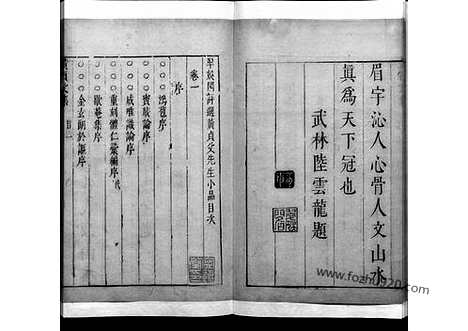 眉宇沁人心骨人文山水
真為天下冠也
武林陸雲龍題
翠娛閣評選黃貞父先生小品目次
卷一
序
鴻苞序
賓族論序
成唯識論序
重刻體仁彙編序
歇菴集序
www.fozhu920.com